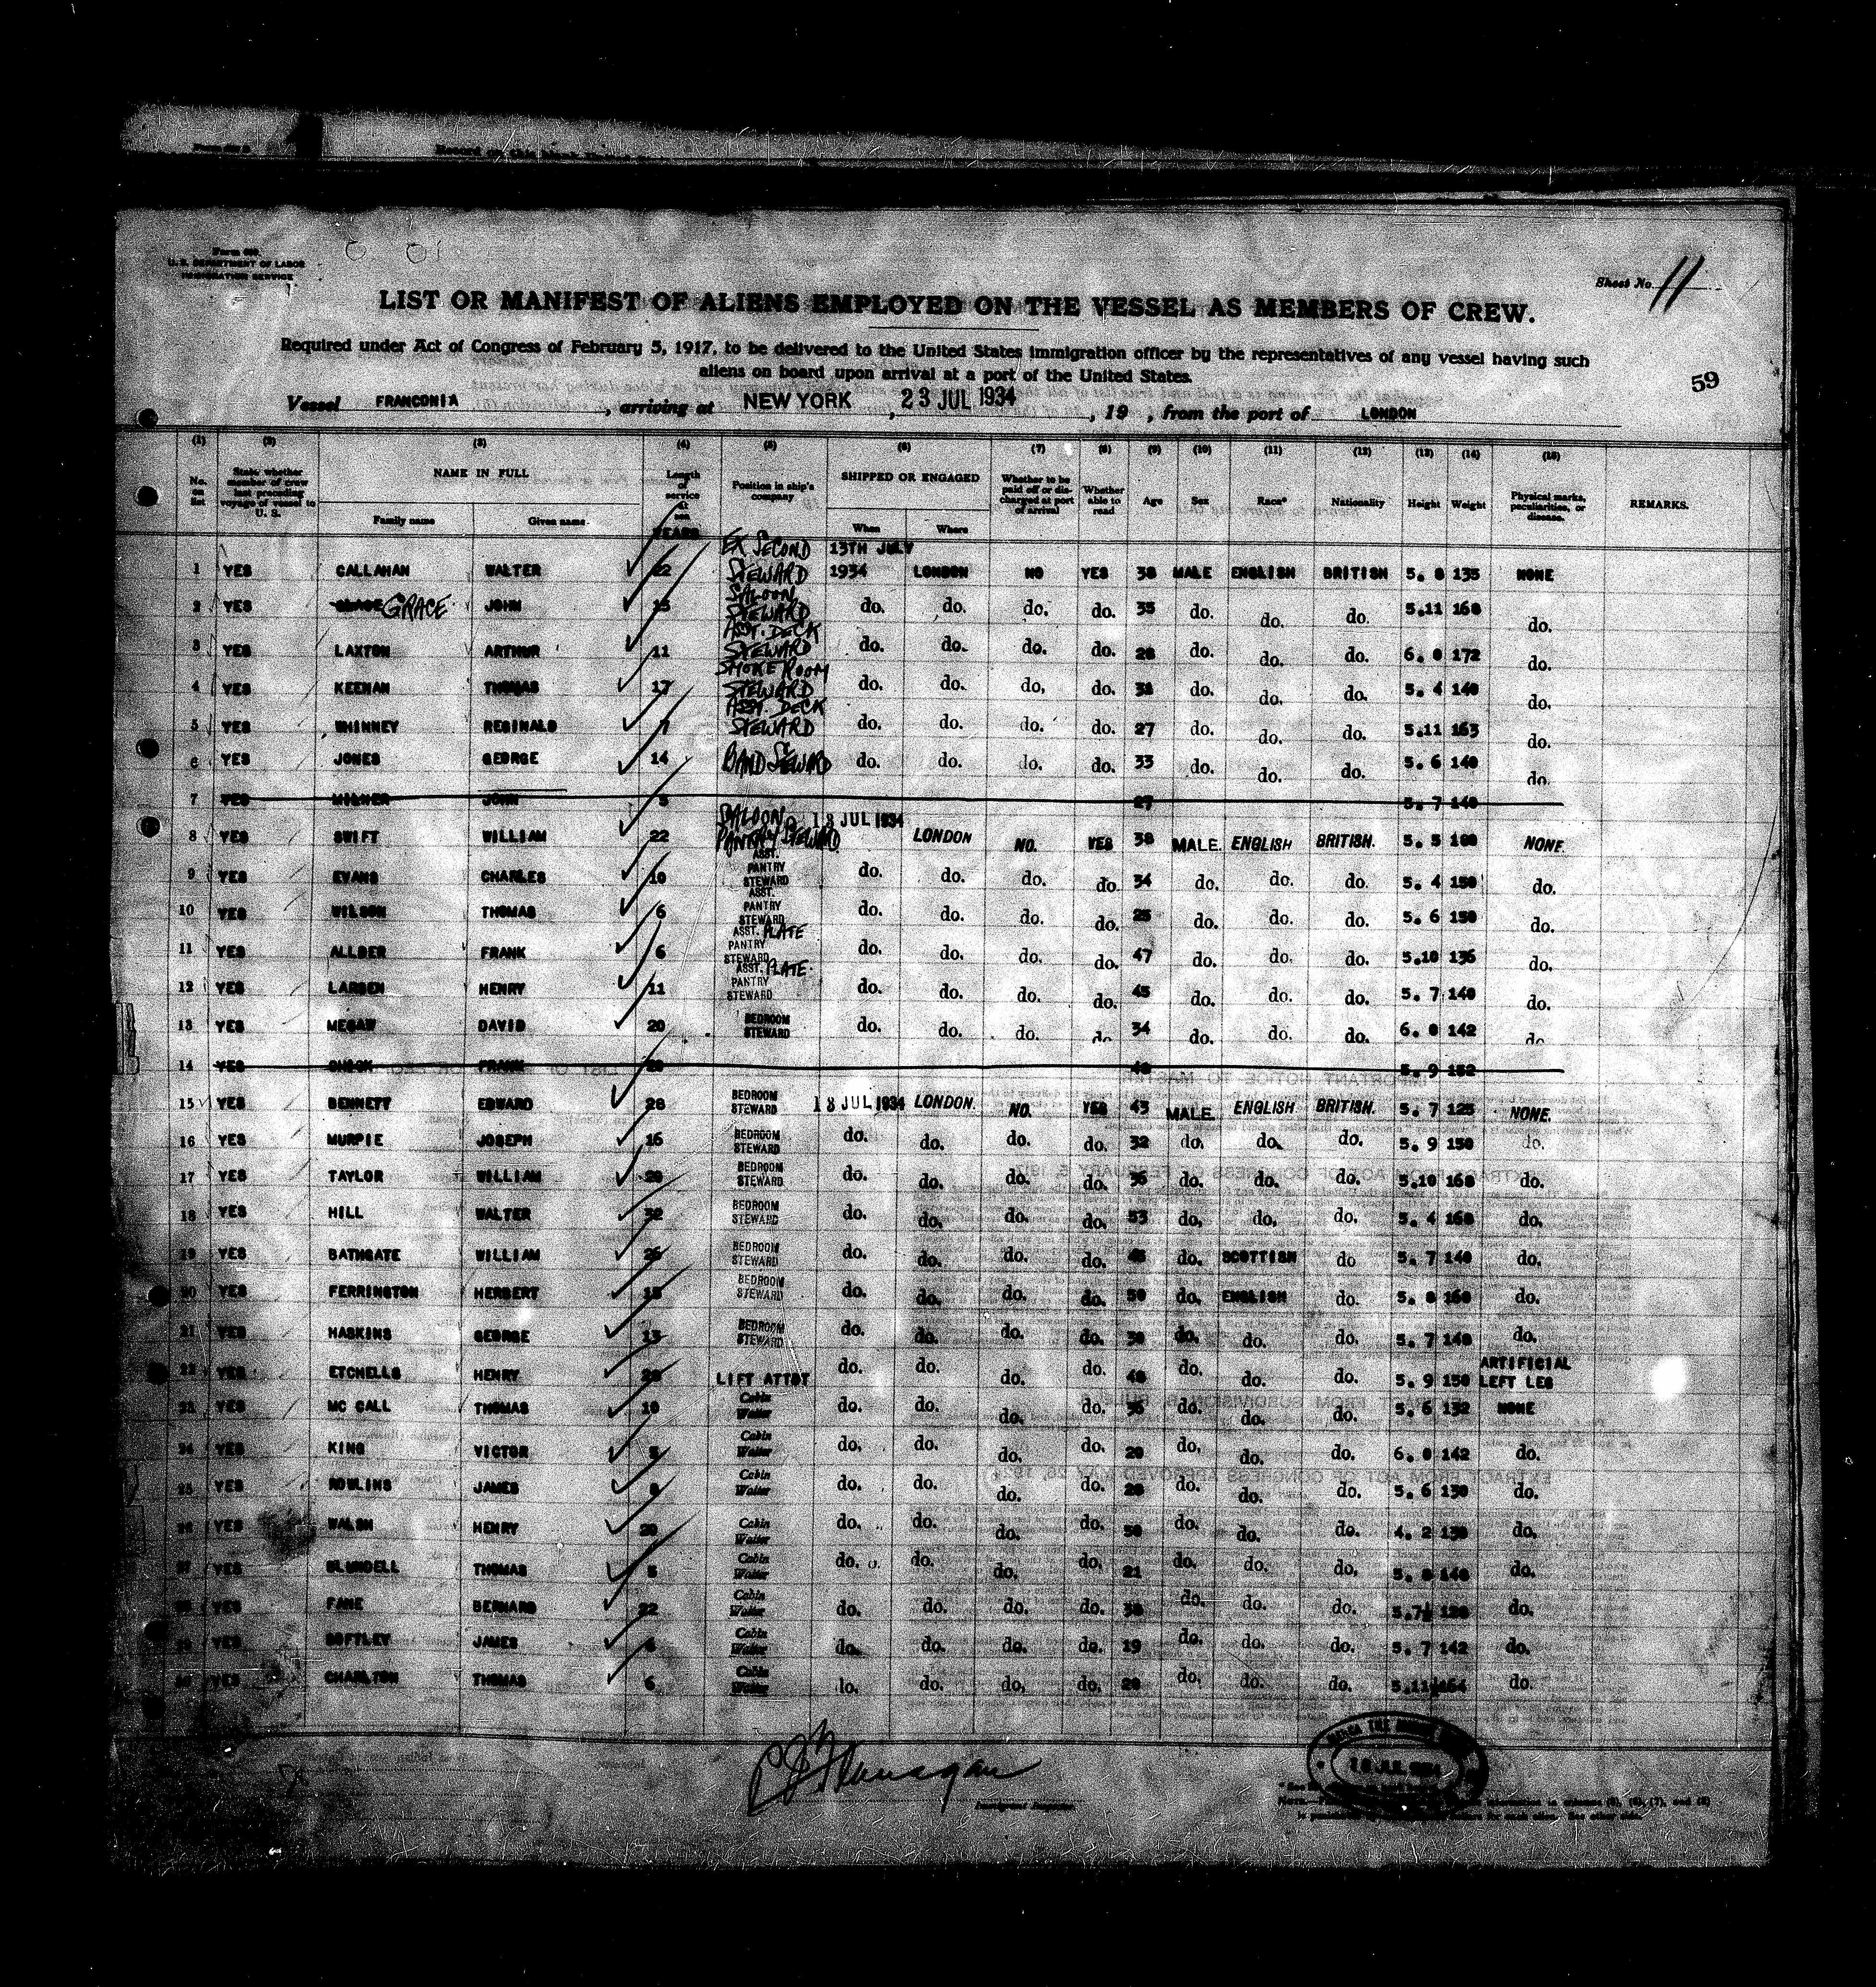 Form 680
U. S. DEPARTMENT OF LABOR
IMMIGRATION SERVICE
Sheet No. 11
LIST OR MANIFEST OF ALIENS EMPLOYED ON THE VESSEL AS MEMBERS OF CREW.
Required under Act of Congress of February 5, 1917, to be delivered to the United States immigration officer by the representatives of any vessel having such
aliens on board upon arrival at a port of the United States.
59
Vessel FRANCONIA, arriving at NEW YORK, 23 JUL 1934, 19 , from the port of LONDON
(1) (2) (3) (4) (5) (6) (7) (8) (9) (10) (11) (12) (13) (14) (15)
No. on list State whether member of crew last preceding voyage of vessel to U. S. NAME IN FULL Family name Given name Length of service at sea YEARS Position in ship's company SHIPPED OR ENGAGED When Where Whether to be paid off or discharged at port of arrival Whether able to read Age Sex Race* Nationality Height Weight Physical marks, peculiarities, or disease. REMARKS.
1 YES CALLAHAN WALTER 22 EX SECOND STEWARD 13TH JULY 1934 LONDON NO YES 38 MALE ENGLISH BRITISH 5. 8 135 NONE
2 YES GRACE JOHN 15 SALOON STEWARD do. do. do. do. 35 do. do. do. 5.11 168 do.
3 YES LAXTON ARTHUR 11 ASST. DECK STEWARD do. do. do. do. 28 do. do. do. 6. 0 172 do.
4 YES KEENAN THOMAS 17 SMOKE ROOM STEWARD do. do. do. do. 38 do. do. do. 5. 4 140 do.
5 YES WHINNEY REGINALD 7 ASST. DECK STEWARD do. do. do. do. 27 do. do. do. 5.11 163 do.
6 YES JONES GEORGE 14 BAND STEWARD do. do. do. do. 33 do. do. do. 5. 6 140 do.
7 YES MILNER JOHN 5 27 5. 7 140
8 YES SWIFT WILLIAM 22 SALOON PANTRY STEWARD 13 JUL 1934 LONDON NO. YES 38 MALE. ENGLISH BRITISH. 5. 5 180 NONE.
9 YES EVANS CHARLES 10 ASST. PANTRY STEWARD do. do. do. do. 34 do. do. do. 5. 4 150 do.
10 YES WILSON THOMAS 6 ASST. PANTRY STEWARD do. do. do. do. 25 do. do. do. 5. 6 150 do.
11 YES ALLDER FRANK 6 ASST. PLATE PANTRY STEWARD do. do. do. do. 47 do. do. do. 5.10 136 do.
12 YES LARSEN HENRY 11 ASST. PLATE PANTRY STEWARD do. do. do. do. 45 do. do. do. 5. 7 140 do.
13 YES MEGAW DAVID 20 BEDROOM STEWARD do. do. do. do. 34 do. do. do. 6. 0 142 do
14 YES FRANK 5. 9 152
15 YES BENNETT EDWARD 28 BEDROOM STEWARD 13 JUL 1934 LONDON. NO. YES 43 MALE. ENGLISH BRITISH. 5. 7 125 NONE.
16 YES MURPIE JOSEPH 16 BEDROOM STEWARD do. do. do. do. 32 do. do. do. 5. 9 150 do.
17 YES TAYLOR WILLIAM 20 BEDROOM STEWARD do. do. do. do. 36 do. do. do. 5.10 168 do.
18 YES HILL WALTER 32 BEDROOM STEWARD do. do. do. do. 53 do. do. do. 5. 4 160 do.
19 YES BATHGATE WILLIAM 26 BEDROOM STEWARD do. do. do. do. 45 do. SCOTTISH do 5. 7 140 do.
20 YES FERRINGTON HERBERT 15 BEDROOM STEWARD do. do. do. do. 50 do. ENGLISH do. 5. 8 160 do.
21 YES HASKINS GEORGE 13 BEDROOM STEWARD do. do. do. do. 38 do. do. do. 5. 7 140 do.
22 YES ETCHELLS HENRY LIFT ATTDT do. do. do. do. 48 do. do. do. 5. 9 150 ARTIFICIAL LEFT LEG
23 YES MC CALL THOMAS 10 Cabin Waiter do. do. do. do. 36 do. do. do. 5. 6 132 NONE
24 YES KING VICTOR Cabin Waiter do. do. do. do. 20 do. do. do. 6. 0 142 do.
25 YES ROWLINS JAMES Cabin Waiter do. do. do. do. 28 do. do. do. 5. 6 130 do.
26 YES WALSH HENRY 20 Cabin Waiter do. do. do. do. 50 do. do. do. 4. 2 130 do.
27 YES BLUNDELL THOMAS 5 Cabin Waiter do. do. do. do. 21 do. do. do. 5. 8 140 do.
28 YES FANE BERNARD 22 Cabin Waiter do. do. do. do. 38 do. do. do. 5.7½ 120 do.
29 YES SOFTLEY JAMES Cabin Waiter do. do. do. do. 19 do. do. do. 5. 7 142 do.
30 YES CHARLTON THOMAS 6 Cabin Waiter do. do. do. do. 20 do. do. do. 5.11½ 164 do.
Flanagan
Immigrant Inspector.